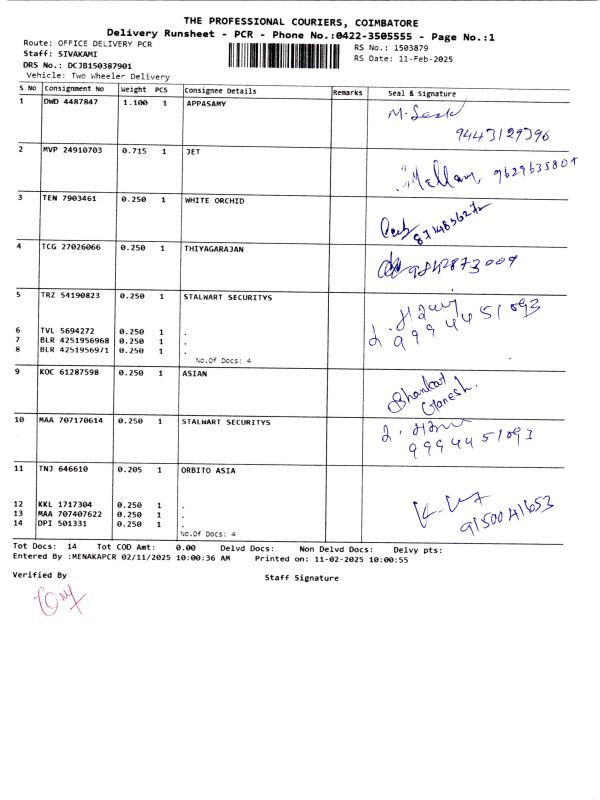 THE PROFESSIONAL COURIERS, COIMBATORE
Delivery Runsheet - PCR - Phone No.:0422-3505555 - Page No.:1
Route: OFFICE DELIVERY PCR
RS No.: 1503879
Staff: SIVAKAMI
RS Date: 11-Feb-2025
DRS No.: DCJB150387901
Vehicle: Two Wheeler Delivery
S No Consignment No Weight PCS Consignee Details Remarks Seal & Signature
1 DWD 4487847 1.100 1 APPASAMY
9443129396
2 MVP 24910703 0.715 1 JET
3 TEN 7903461 0.250 1 WHITE ORCHID
4 TCG 27026066 0.250 1 THIYAGARAJAN
9842873009
5 TRZ 54190823 0.250 1 STALWART SECURITYS
9994451093
6 TVL 5694272 0.250 1 .
7 BLR 4251956968 0.250 1 .
8 BLR 4251956971 0.250 1 .
No.Of Docs: 4
9 KOC 61287598 0.250 1 ASIAN
Bhankar
Ganesh.
10 MAA 707170614 0.250 1 STALWART SECURITYS
9994451093
11 TNJ 646610 0.205 1 ORBITO ASIA
12 KKL 1717304 0.250 1 .
13 MAA 707407622 0.250 1 .
14 DPI 501331 0.250 1 .
9150041653
No.Of Docs: 4
Tot Docs: 14 Tot COD Amt: 0.00 Delvd Docs: Non Delvd Docs: Delvy pts:
Entered By :MENAKAPCR 02/11/2025 10:00:36 AM Printed on: 11-02-2025 10:00:55
Verified By
Staff Signature